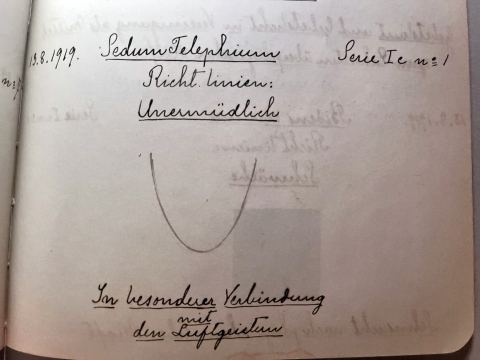 13.8.1919. Sedum Telephium Serie I c n: 1
Richt. linien:
Unermüdlich
In besonderer Verbindung
mit
den Luftgeistern